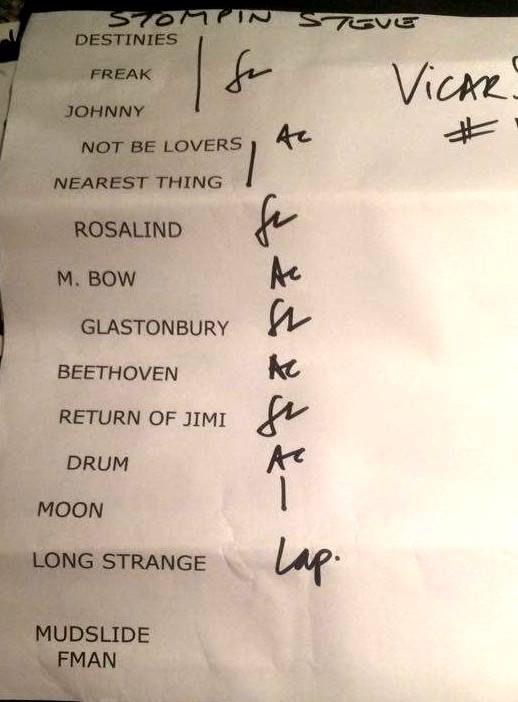 STOMPIN STEVE
DESTINIES
FREAK
JOHNNY
VICAR
#
NOT BE LOVERS Ac
NEAREST THING
ROSALIND
M. BOW Ac
GLASTONBURY
BEETHOVEN Ac
RETURN OF JIMI
DRUM Ac
MOON
LONG STRANGE Lap.
MUDSLIDE
FMAN